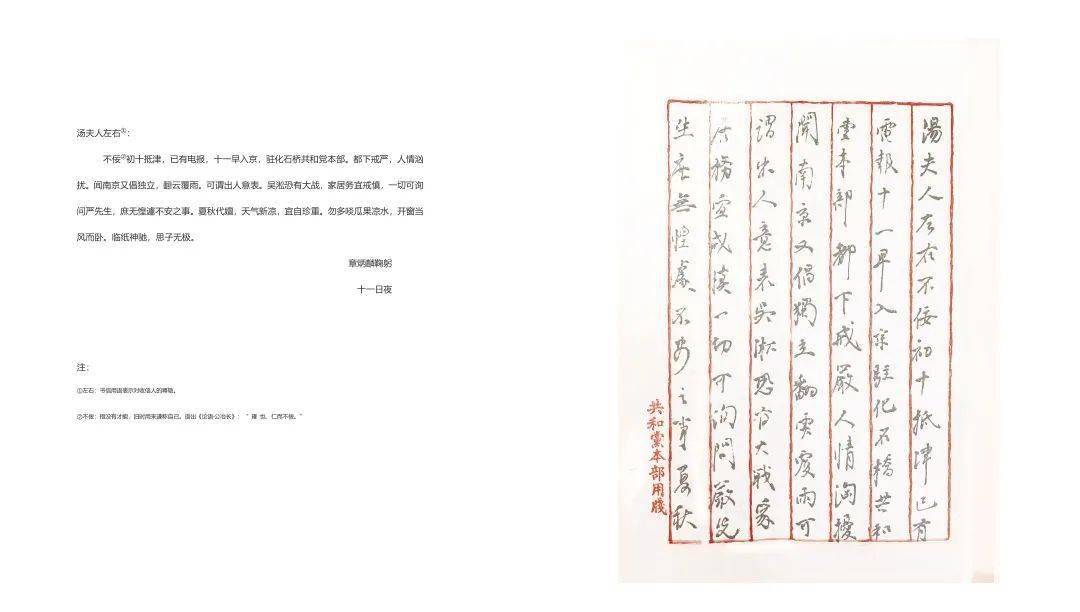 汤夫人左右①：
不佞②初十抵津，已有电报，十一早入京，驻化石桥共和党本部。都下戒严，人情汹
扰。闻南京又倡独立，翻云覆雨。可谓出人意表。吴淞恐有大战，家居务宜戒慎，一切可询
问严先生，庶无惶遽不安之事。夏秋代嬗，天气新凉，宜自珍重。勿多啖瓜果凉水，开窗当
风而卧。临纸神驰，思子无极。
章炳麟鞠躬
十一日夜
注：
①左右：书信用语表示对收信人的尊敬。
②不佞：指没有才能，旧时用来谦称自己。语出《论语·公冶长》：“ 雍 也，仁而不佞。”
湯夫人左右不佞初十抵津已有
電報十一早入京駐化石橋共和
黨本部都下戒嚴人情洶擾
聞南京又倡獨立翻雲覆雨可
謂出人意表吳淞恐有大戰家
居務宜戒慎一切可詢問嚴先
生庶無惶遽不安之事夏秋
共和黨本部用牋